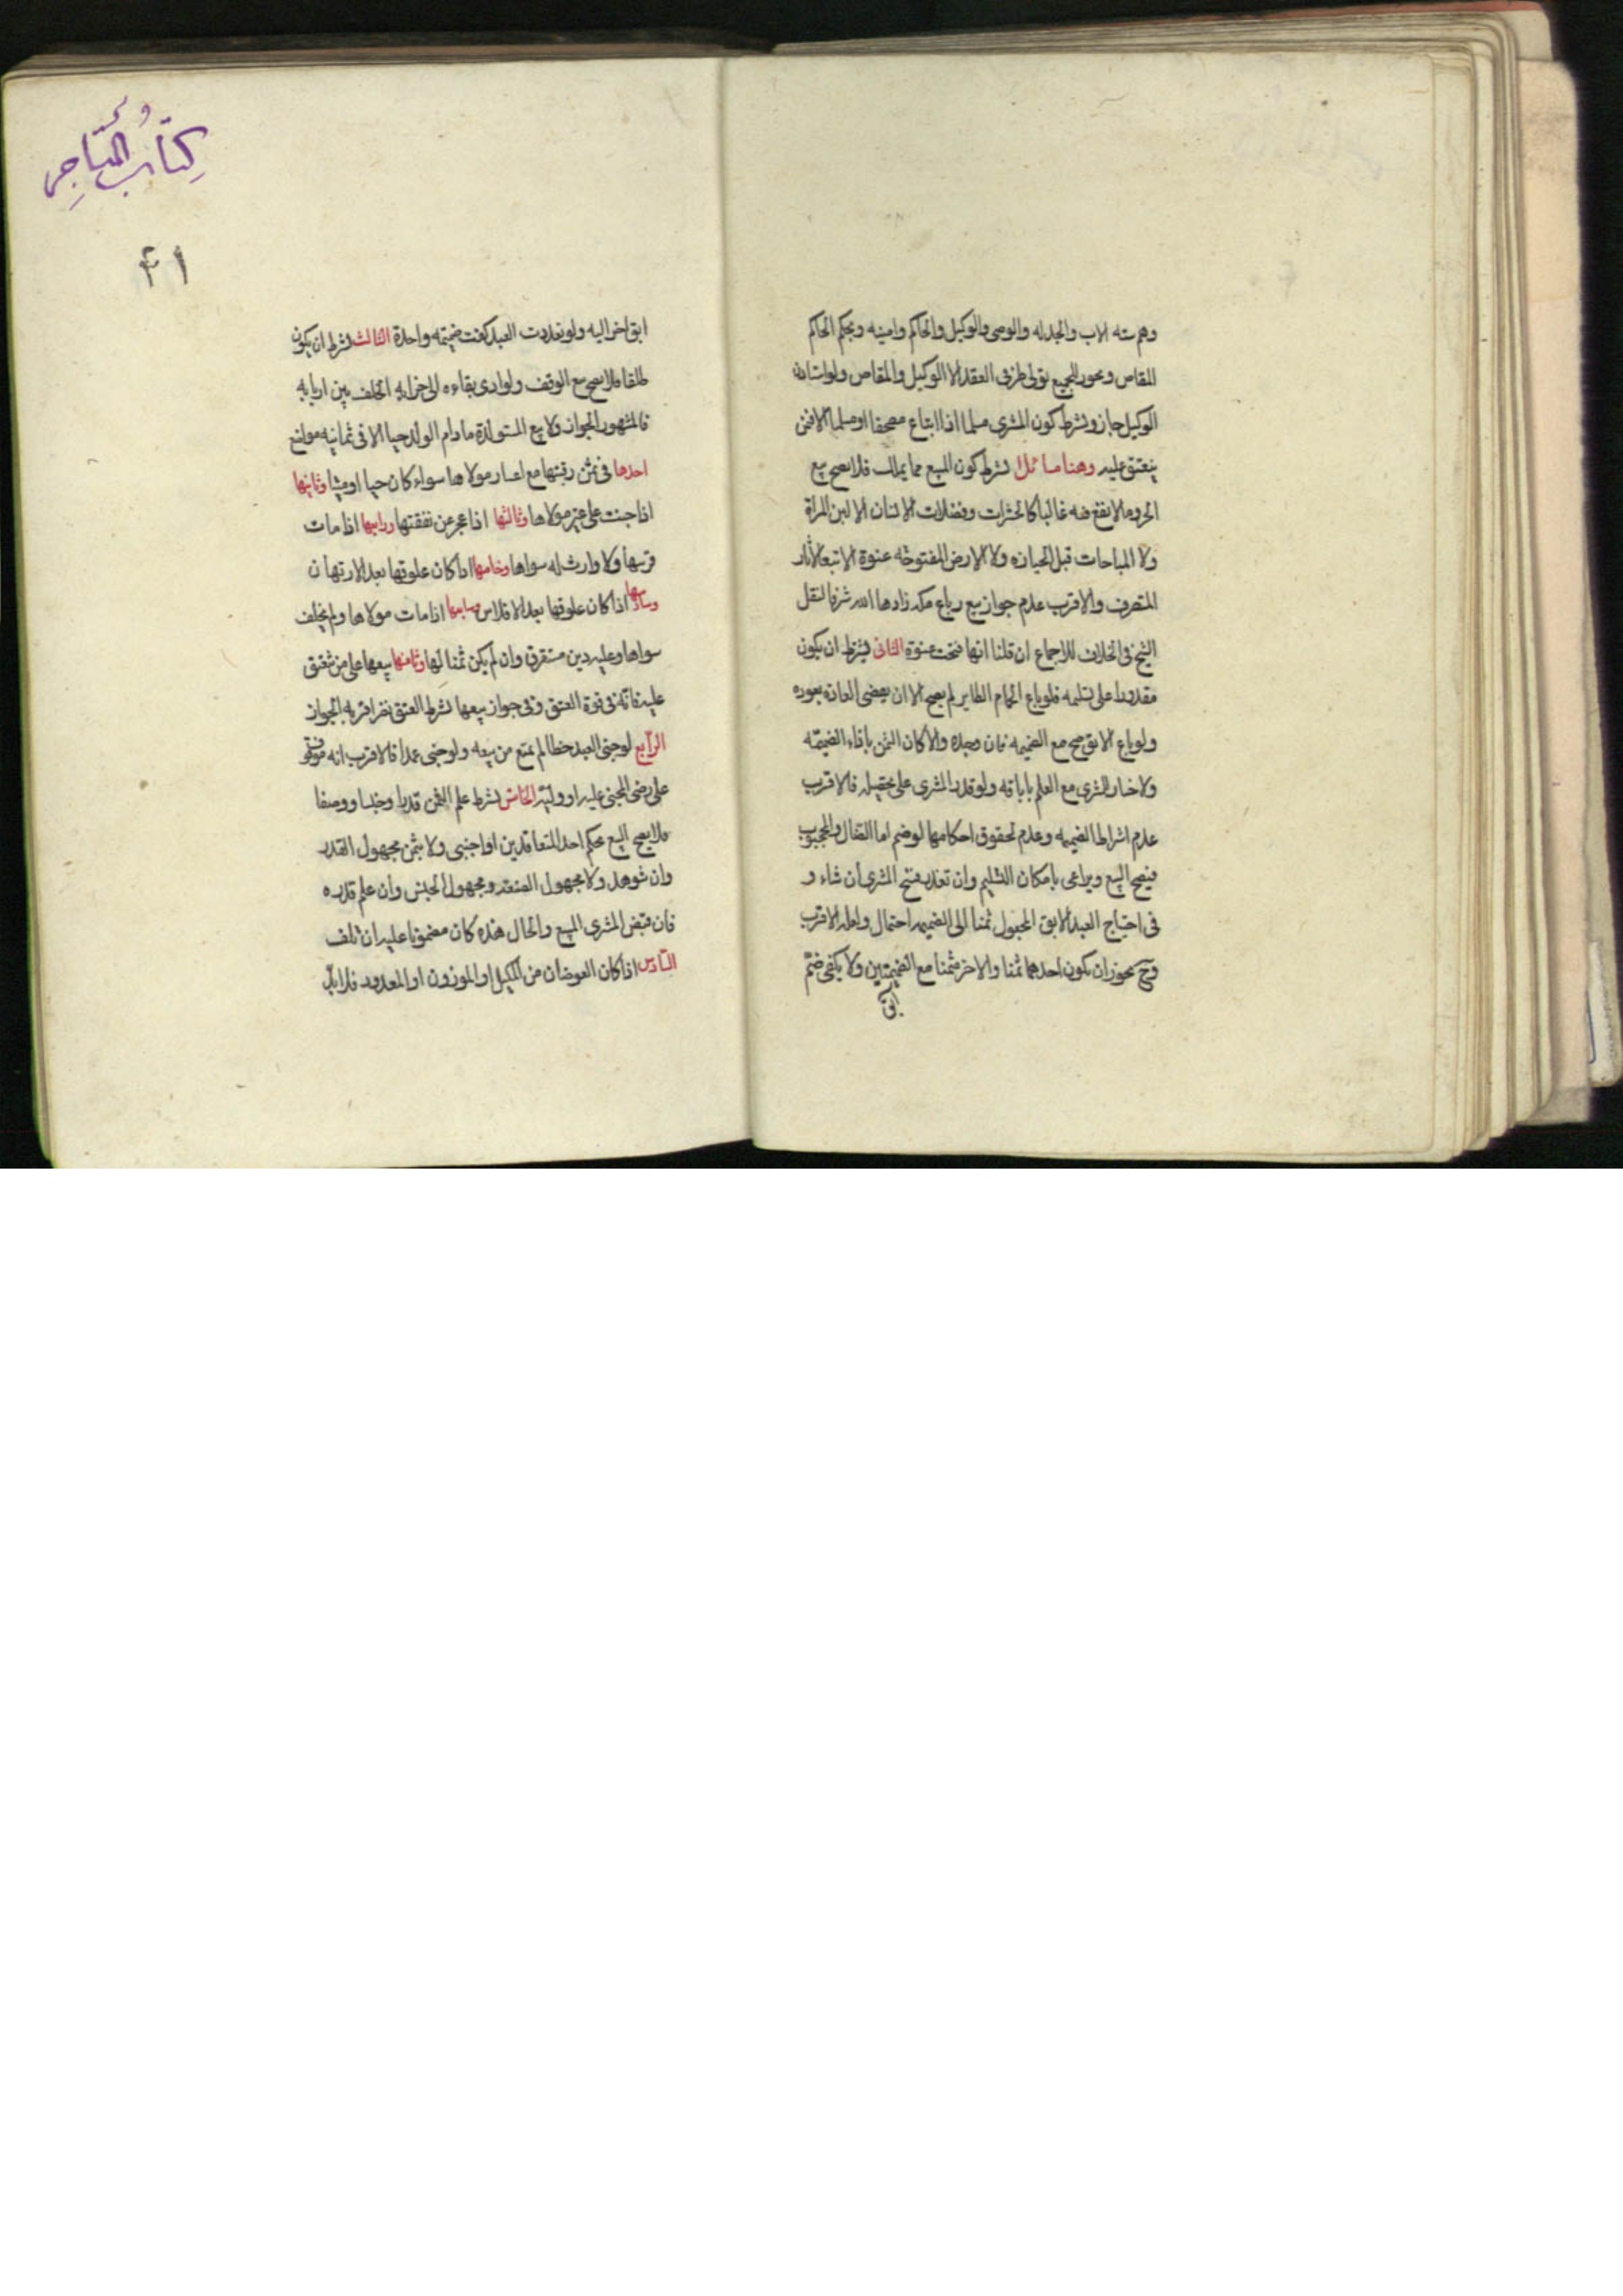 وهم سته الاب والجد له والوصى والوكيل والحاكم وامينه وبحكم الحاكم
المقاص ويجوز للجميع تولى طرفى العقد الا الوكيل والمقاص ولو استاذن
الوكيل جاز ويشترط كون المشترى مسلما اذا ابتاع مصحفا او مسلما الا فيمن
ينعتق عليه وهنا مسائل الا يشترط كون المبيع مما يملك فلا يصح بيع
الحر وما لا نفع فيه غالبا كالحشرات وفضلات الانسان الا لبن المراة
ولا المباحات قبل الحيازه ولا الارض المفتوحه عنوة الا تبعا لاثار
المتصرف والاقرب عدم جواز بيع رباع مكه زادها الله شرفا لنقل
الشيخ فى الخلاف للاجماع ان قلنا انها فتحت عنوة الثانى يشترط ان يكون
مقدورا على تسليمه فلو باع الحمام الطاير لم يصح الا ان يقضى العاده بعوده
ولو باع الابق صح مع الضميمه فان وجده والا كان الثمن بازاء الضميمه
ولا خيار للمشترى مع العلم باباقه ولو قدر المشترى على تحصيله فالاقرب
عدم اشتراط الضميمه وعدم لحقوق احكامها لو ضم اما الضال والمجحود
فيصح البيع ويراعى بامكان التسليم وان تعذر فسخ المشترى ان شاء و
فى احتياج العبد الابق المجعول ثمنا الى الضميمه احتمال ولعله الاقرب
وح يجوز ان يكون احدهما ثمنا والاخر مثمنا مع الضميمتين ولا يكفى ضم
آبق
كِتَابُ المَتَاجِرِ
۴۱
ابق اخر اليه ولو تعددت العبيد كفت ضميمه واحدة الثالث يشترط ان يكون
طلقا فلا يصح بيع الوقف ولو ادى بقاءه الى خرابه لخلف بين اربابه
فالمشهور الجواز ولا بيع المستولدة ما دام الولد حيا الا فى ثمانيه مواضع
احدها فى ثمن رقبتها مع اعسار مولاها سواء كان حيا او ميتا وثانيها
اذا جنت على غير مولاها وثالثها اذا عجز عن نفقتها ورابعها اذا مات
قريبها ولا وارث له سواها وخامسها اذا كان علوقها بعد الارتهان
وسادسها اذا كان علوقها بعد الافلاس وسابعها اذا مات مولاها ولم يخلف
سواها وعليه دين مستغرق وان لم يكن ثمنا لها وثامنها بيعها على من تنعتق
عليه فانه فى قوة العتق وفى جواز بيعها بشرط العتق نظر اقربه الجواز
الرابع لو جنى العبد خطا لم يمنع من بيعه ولو جنى عمدا فالاقرب انه موقوف
على رضى المجنى عليه او وليه الخامس يشترط علم الثمن قدرا وجنسا ووصفا
فلا يصح البيع بحكم احد المتعاقدين او اجنبى ولا بثمن مجهول القدر
وان شوهد ولا مجهول الصفه ومجهول الجنس وان علم قدره
فان قبض المشترى المبيع والحال هذه كان مضمونا عليه ان تلف
السادس اذا كان العوضان من المكيل او الموزون او المعدود فلا بد